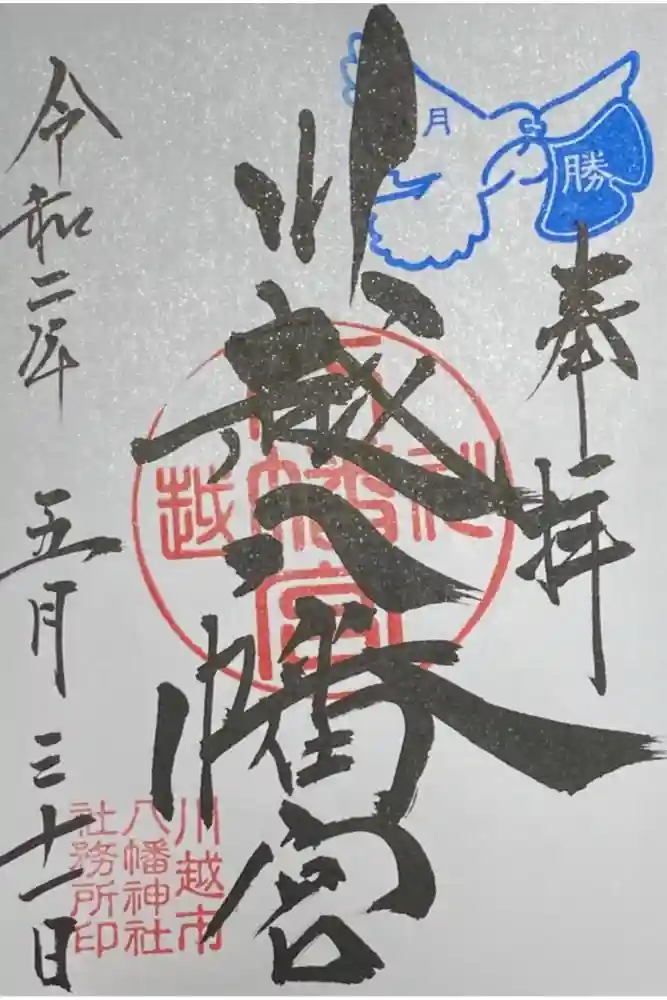 奉拝
月
勝
川越八幡宮
令和二年五月三十一日
川越市
八幡神社
社務所印